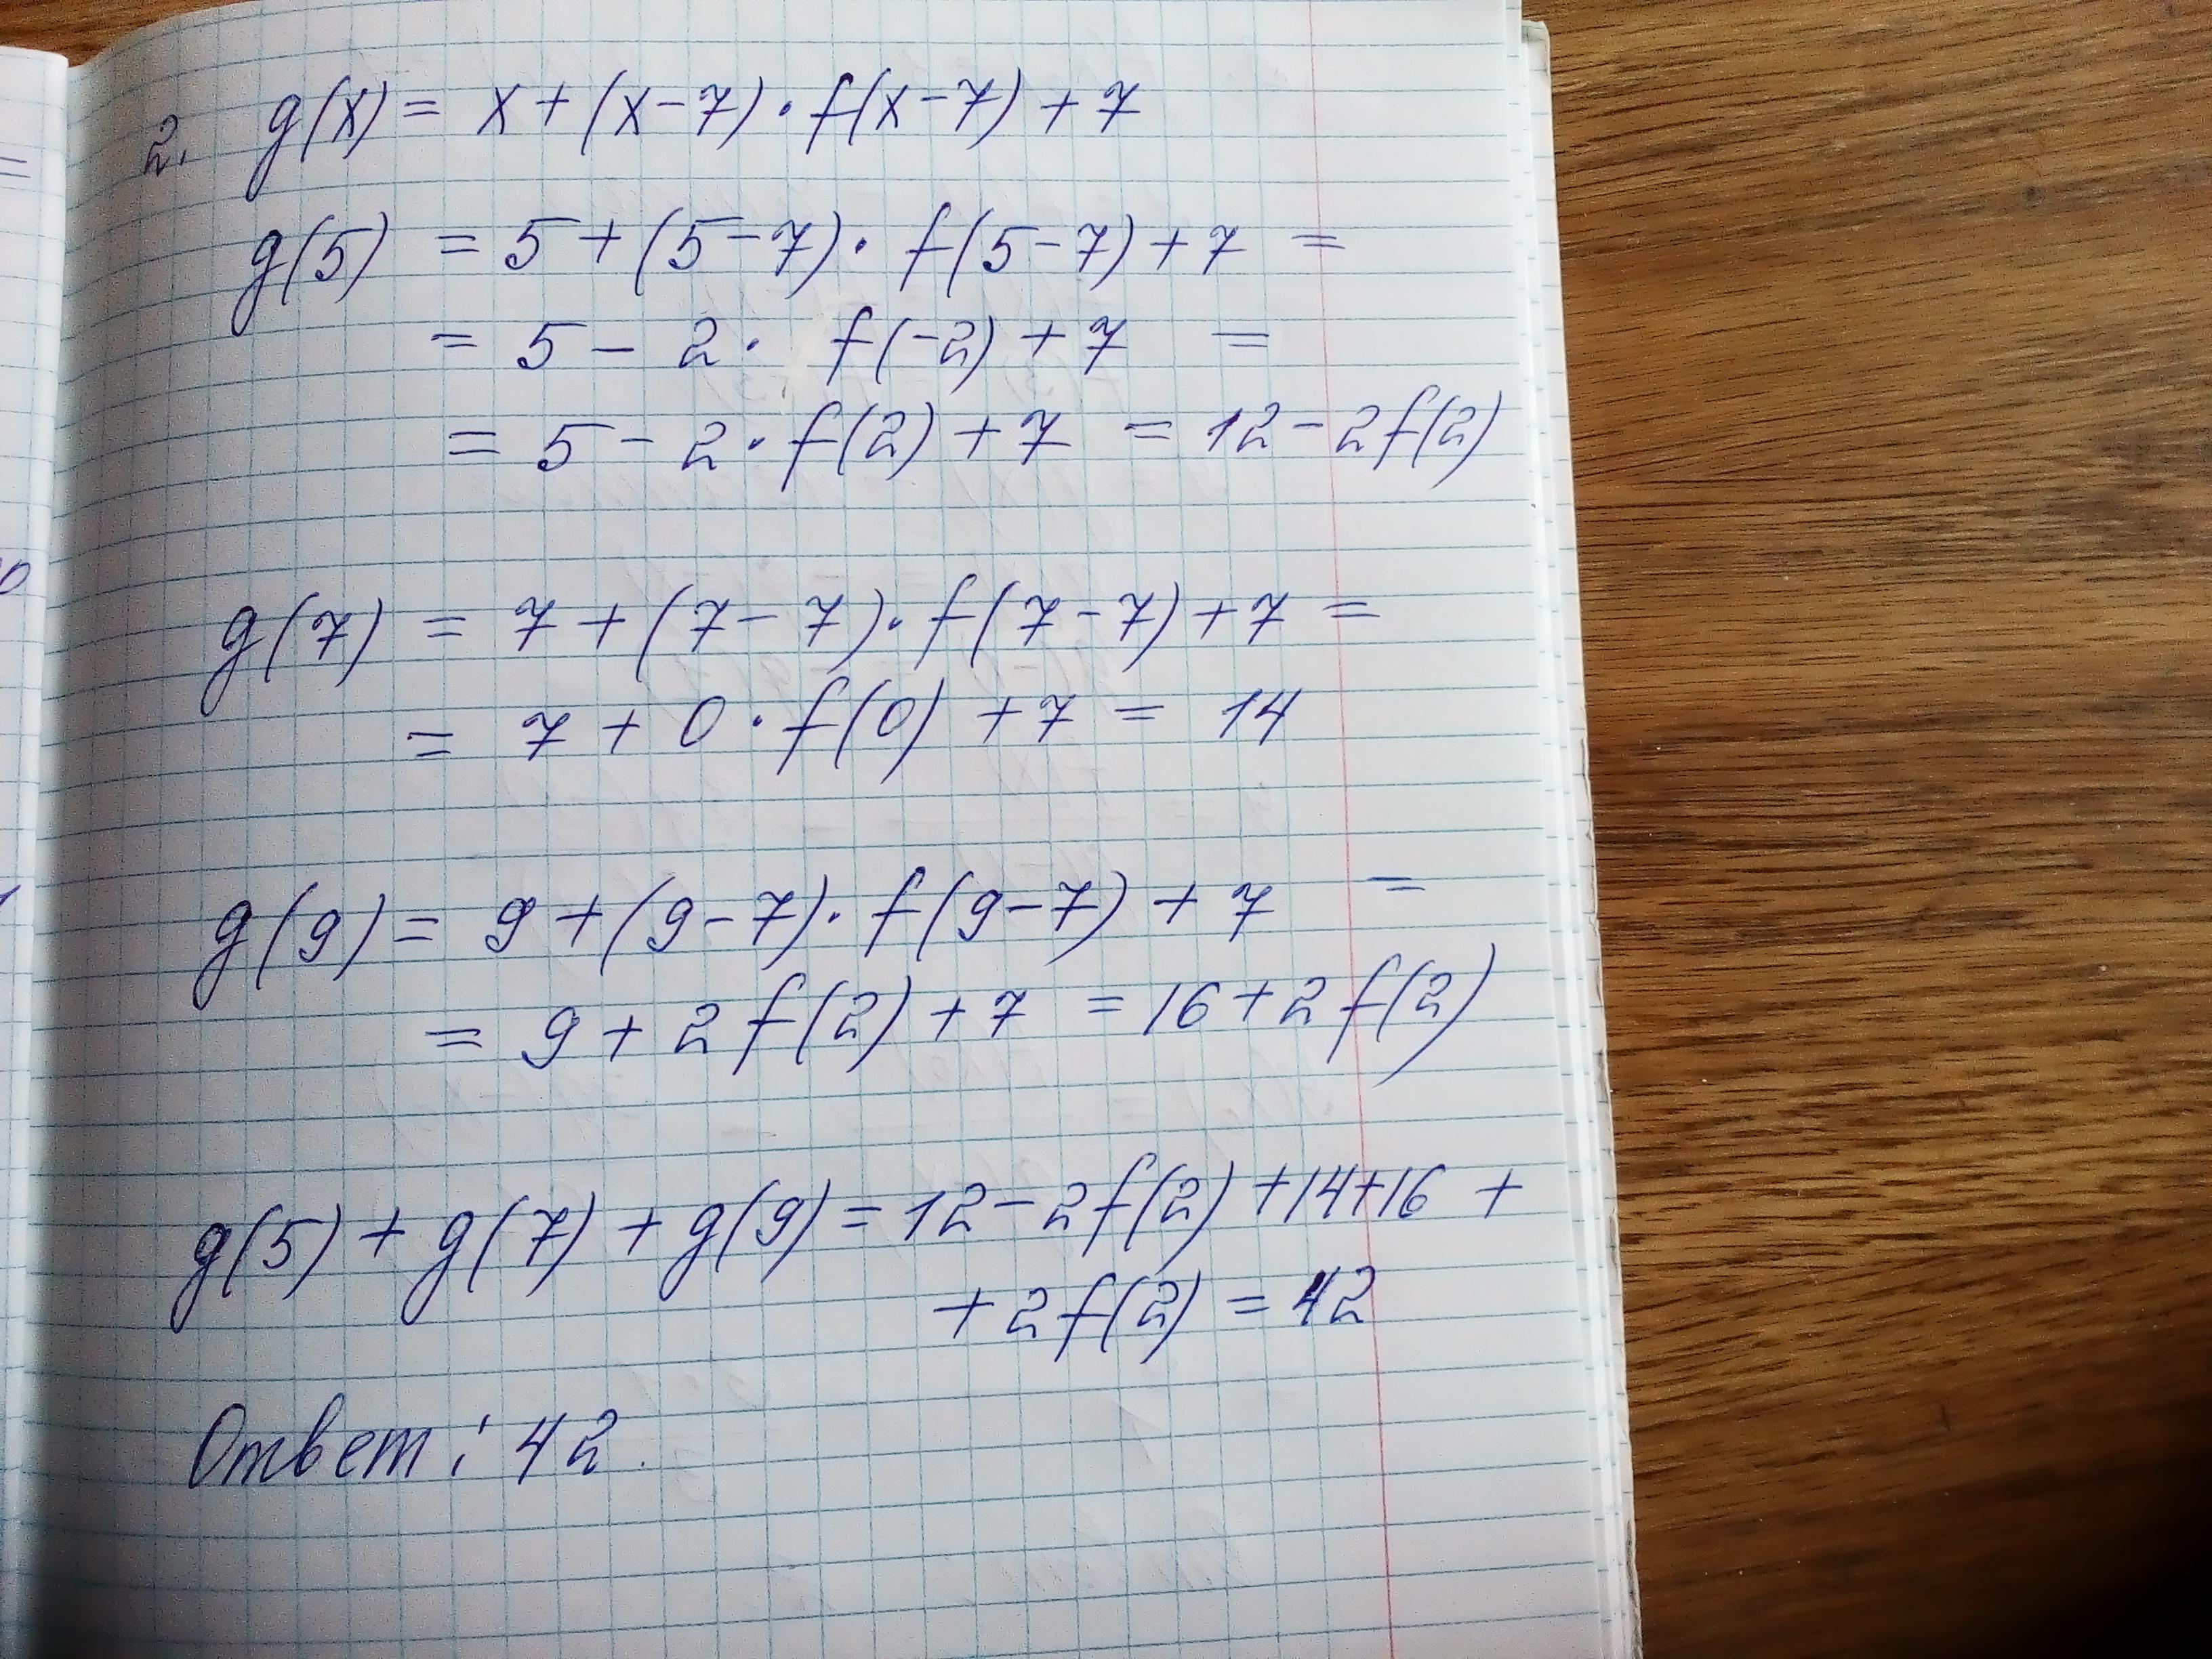 2. g(x) = x + (x - 7) · f(x - 7) + 7
g(5) = 5 + (5 - 7) · f(5 - 7) + 7 =
= 5 - 2 · f(-2) + 7 =
= 5 - 2 · f(2) + 7 = 12 - 2f(2)
g(7) = 7 + (7 - 7) · f(7 - 7) + 7 =
= 7 + 0 · f(0) + 7 = 14
g(9) = 9 + (9 - 7) · f(9 - 7) + 7 =
= 9 + 2f(2) + 7 = 16 + 2f(2)
g(5) + g(7) + g(9) = 12 - 2f(2) + 14 + 16 +
+ 2f(2) = 42
Ответ: 42.